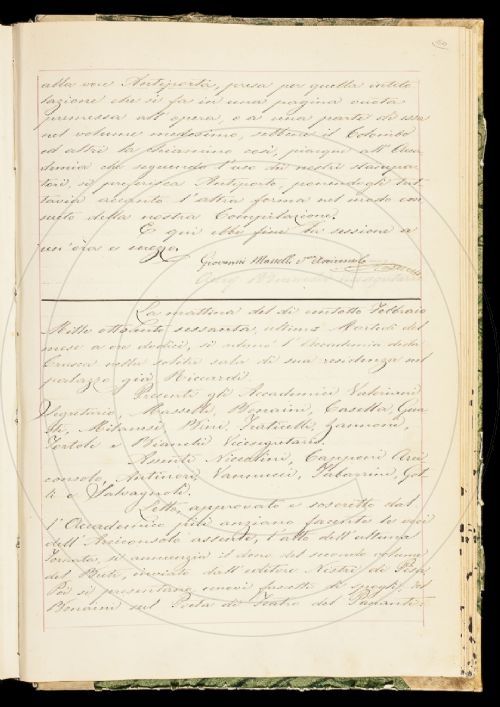 alla voce Antiporta, presa per quella intito
lazione che si fa in una pagina vuota
premessa all'opera, o a una parte di essa
nel volume medesimo, sebbene il Colombo
ed altri la chiamino così, piacque all'Acca
demia che seguendo l'uso dei nostri stampa
tori, si preferisca Antiporto, ponendogli tut
tavia accanto l'altra forma nel modo con
sueto della nostra Compilazione.
E qui ebbe fine la sessione a
un'ora e mezzo.
Giovanni Masselli
La mattina del dì Febbraio
Mille ottocento sessanta, ultimo Martedì del
mese a ore dodici, si adunò l'Accademia della
Crusca nella solita sala di sua residenza nel
palazzo già Riccardi.
Presenti gli Accademici Valeriani
Segretario, Masselli, Bonaini, Casella, Gua
sti, Milanesi, Bini, Fraticelli, Zannoni,
Tortoli e Bianchi Vicesegretario.
Assenti Niccolini, Capponi Arci
consolo, Antinori, Vannucci, Tabarrini, Got
ti e Salvagnoli.
Letto, approvato e soscritto dal
l'Accademico più anziano facente le veci
dell'Arciconsolo assente, l'atto dell'ultima
tornata, si annunzia il dono del secondo volume
del Buti, inviato dall'editore Nistri di Pisa.
Poi si presentano nuovi di spogli del
Bonaini sul Poeta di Teatro del Pananti: